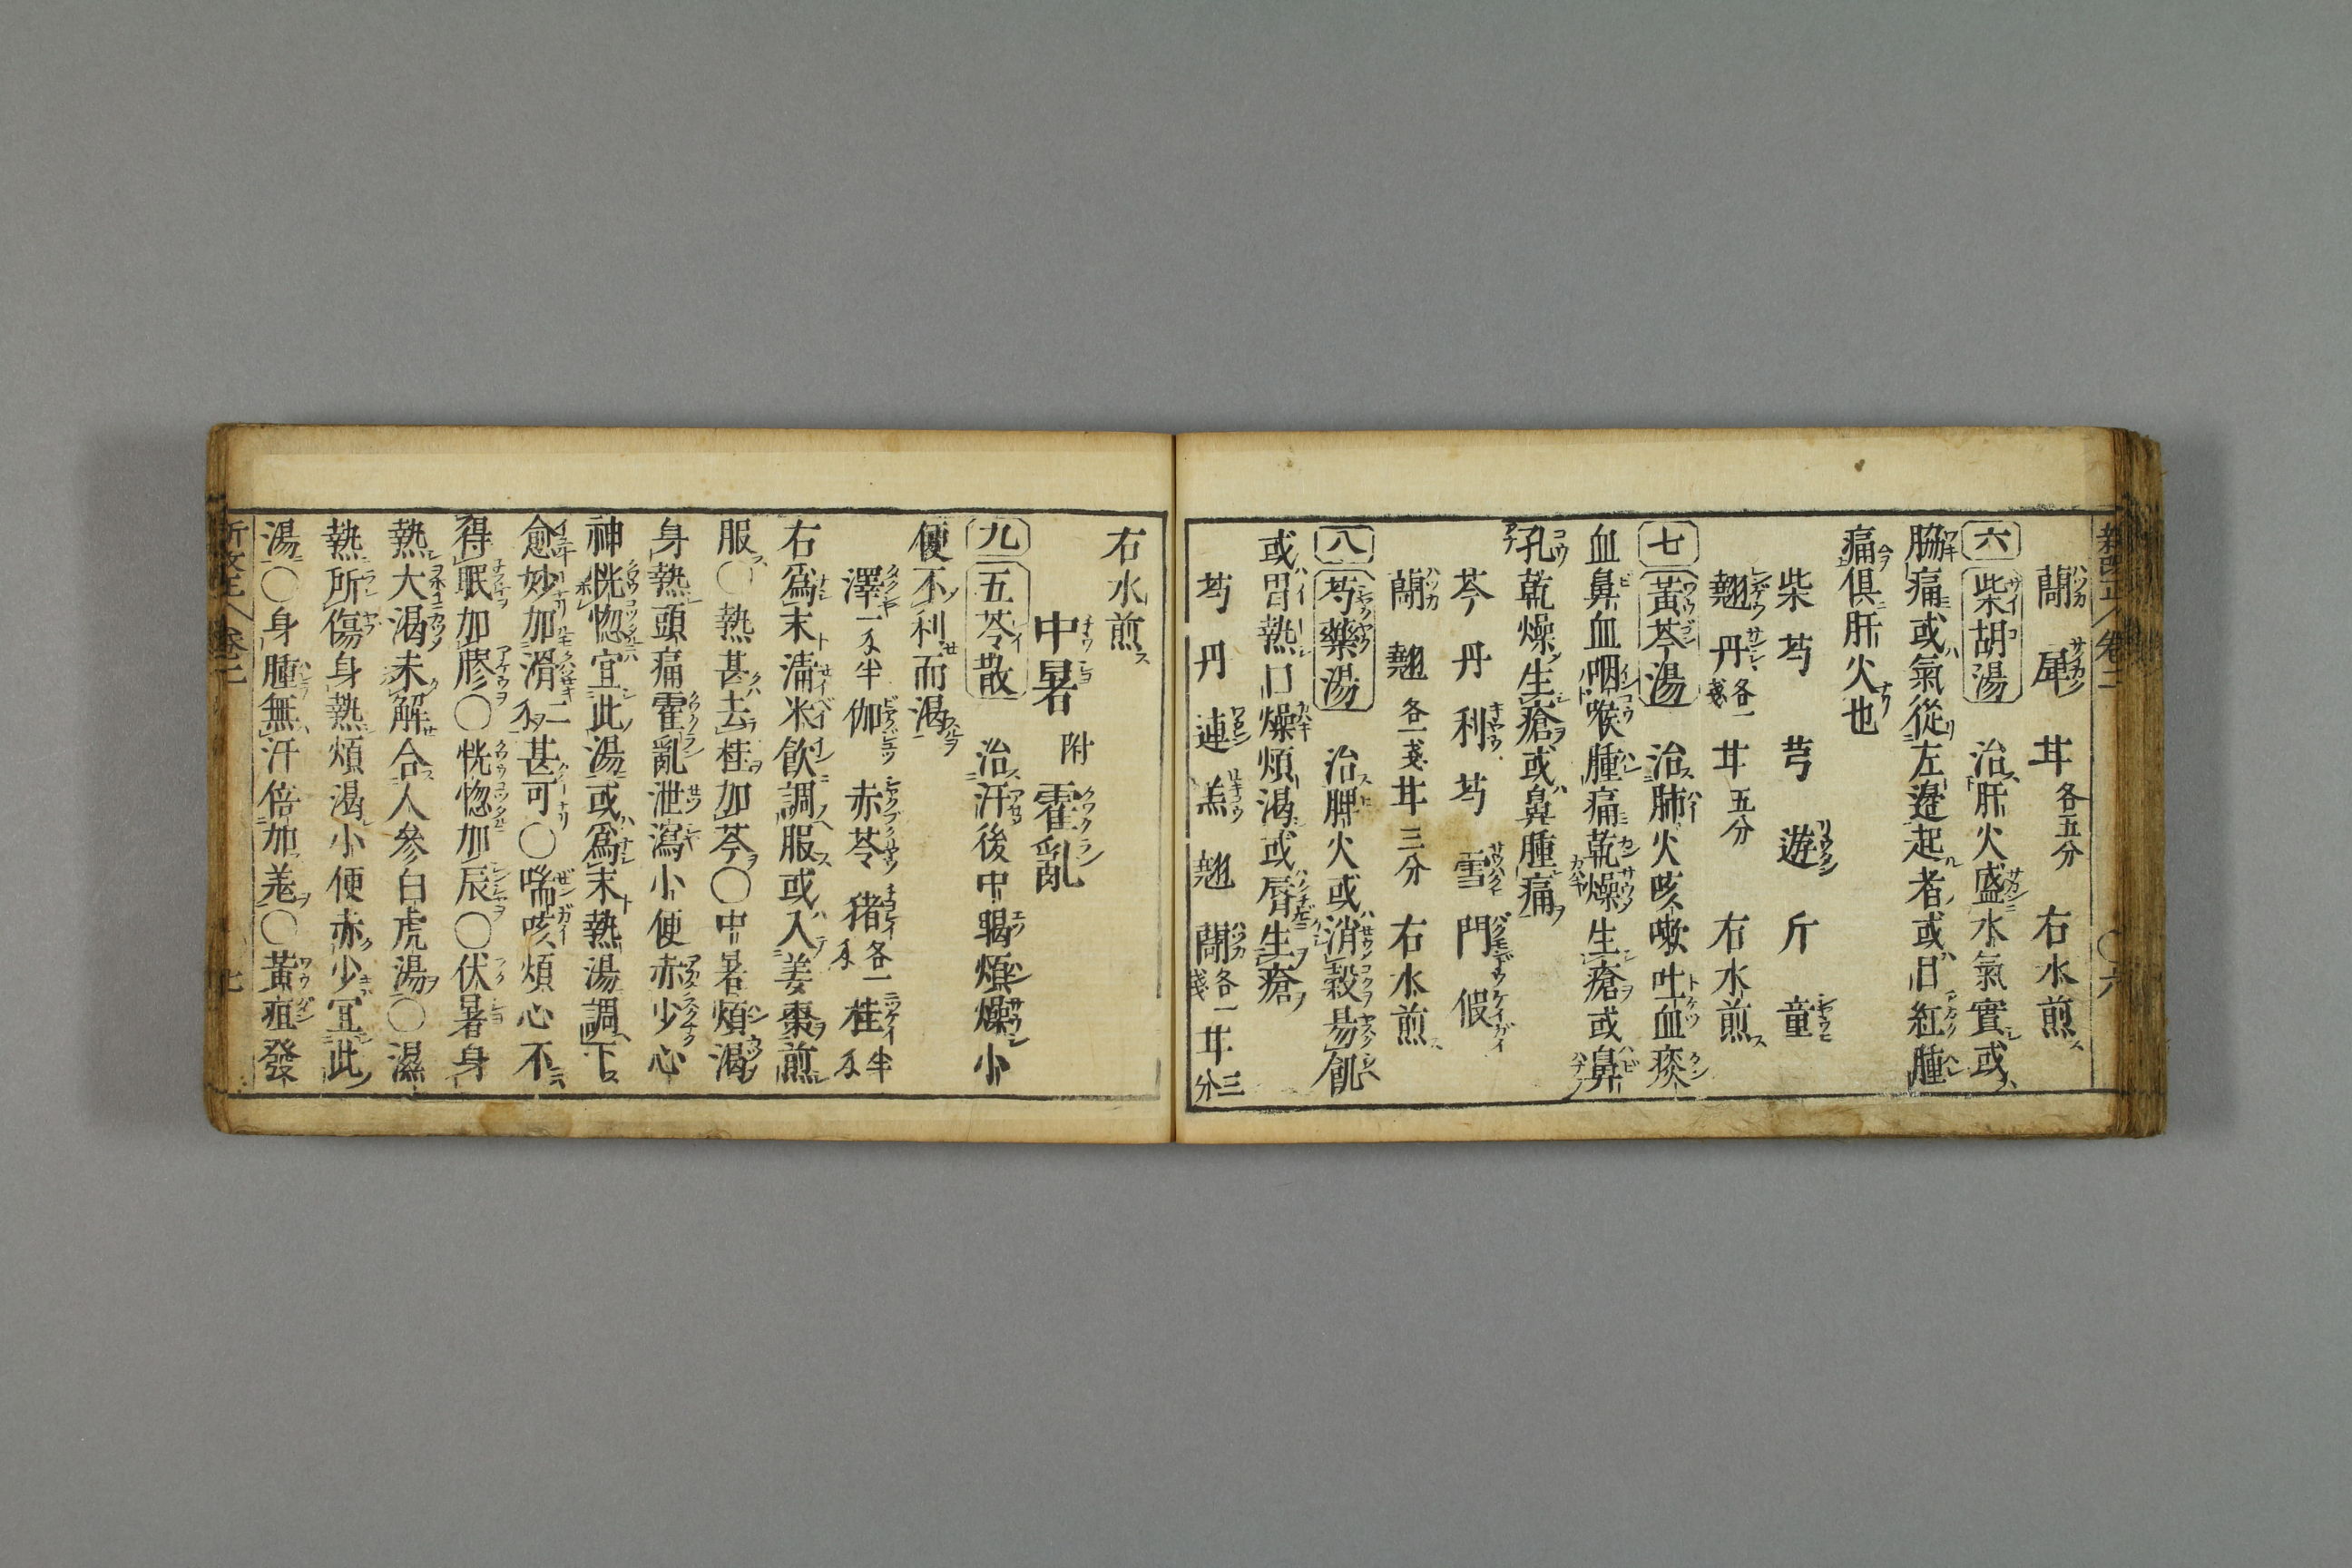 蘭 犀 甘各五分 右水煎
六 柴胡湯 治肝火盛水氣實或
脇痛或氣從左邉起者或目紅腫
痛俱肝火也
柴 芍 芎 遊 斤 童
翹 丹各一戔 甘五分 右水煎
七 黃芩湯 治肺火咳嗽吐血痰
血鼻血咽喉腫痛乾燥生瘡或鼻
孔乾燥生瘡或鼻腫痛
芩 丹 利 芍 雪 門 假
蘭 翹各一戔 甘三分 右水煎
八 芍藥湯 治脾火或消穀昜飢
或胃熱口燥煩渴或唇生瘡
芍 丹 連 羔 翹 蘭各一戔 甘三分
右水煎
中暑 附 霍亂
九 五苓散 治汗後中暍煩燥小
便不利而渴
澤一不半 伽 赤苓 猪各一不 桂半不
右爲末淸米飮調服或入姜棗煎
服〇熱甚去桂加芩〇中暑煩渴
身熱頭痛霍亂泄瀉小便赤少心
神恍惚宜此湯或爲末熱湯調下
愈妙加滑二不甚可〇喘咳煩心不
得眠加膠〇恍惚加辰〇伏暑身
熱大渴未解合人參白虎湯〇濕
熱所傷身熱煩渴小便赤少宜此
湯〇身腫無汗倍加羗〇黃疸發